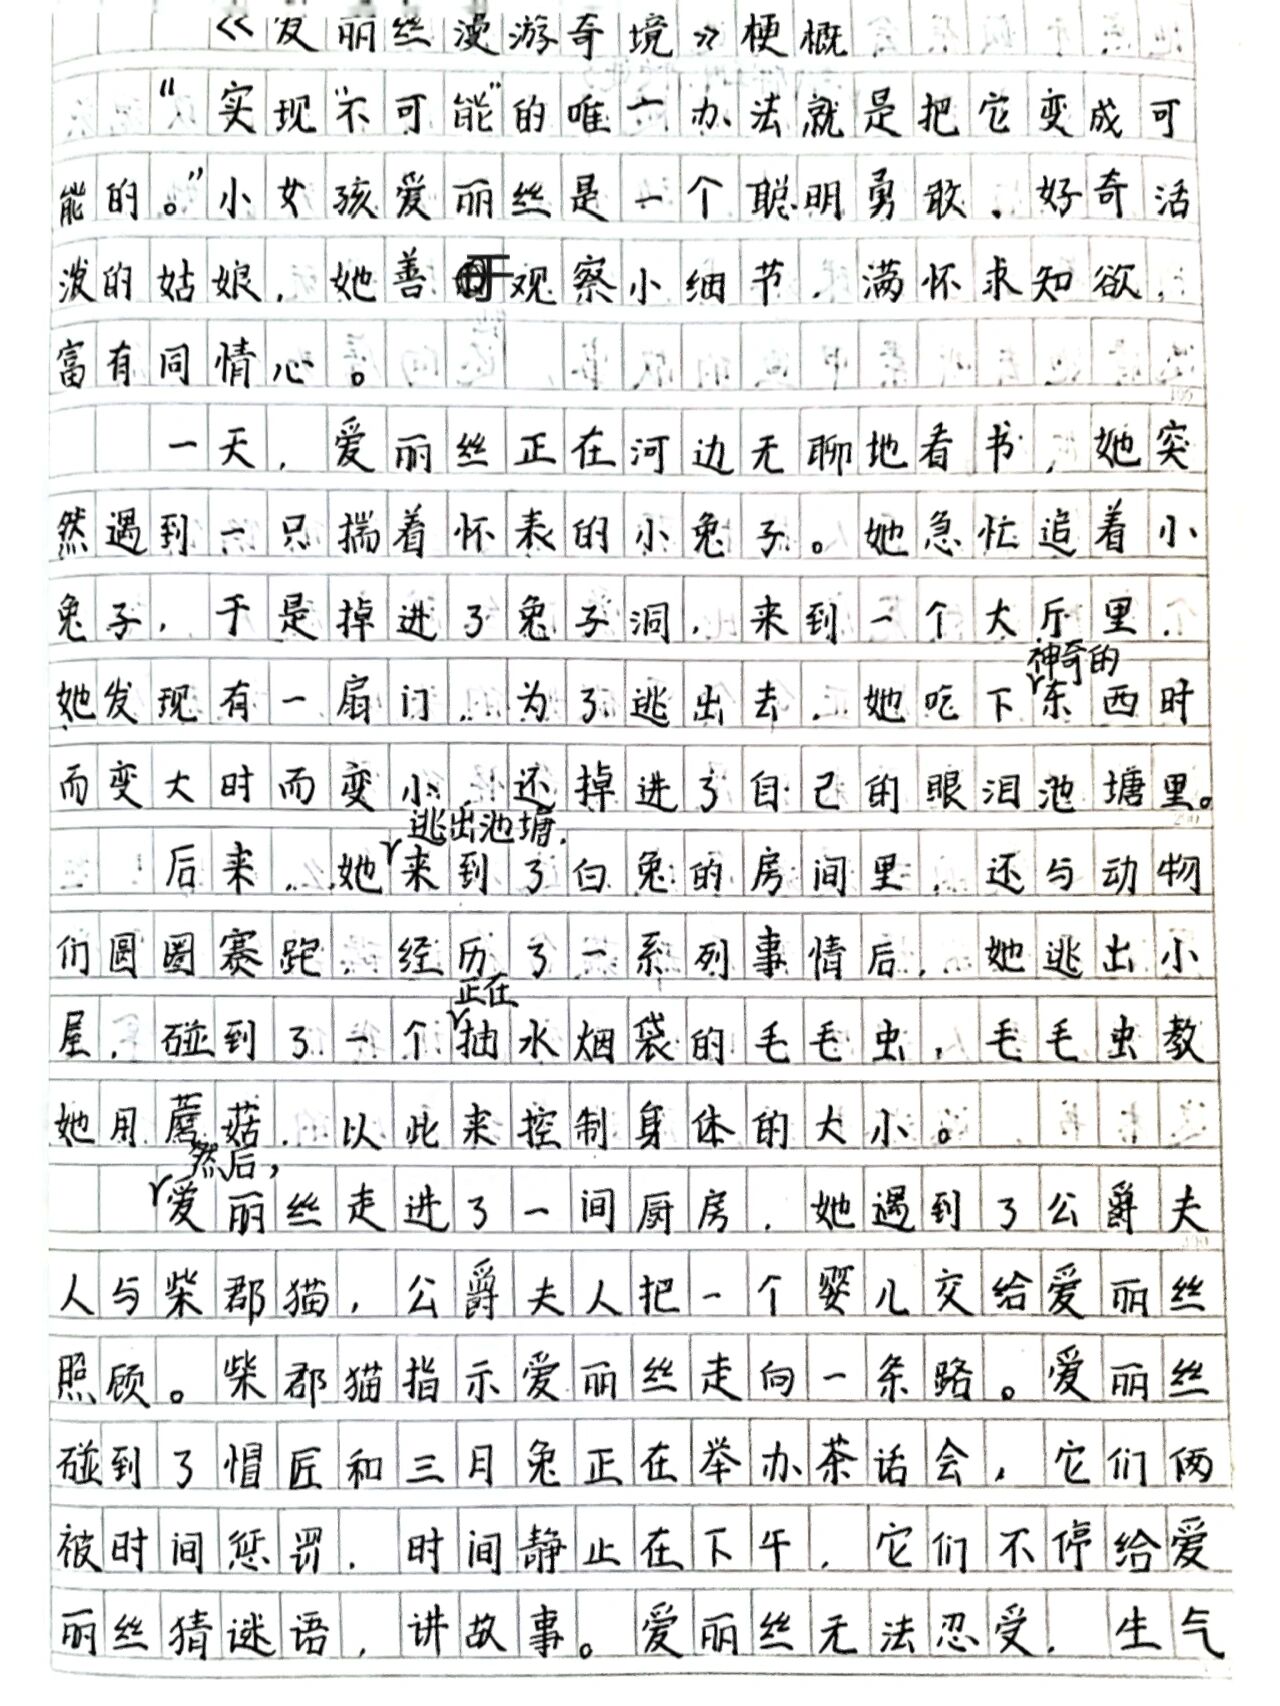 《爱丽丝漫游奇境》梗概
“实现“不可能”的唯一办法就是把它变成可
能的。”小女孩爱丽丝是一个聪明勇敢，好奇活
泼的姑娘，她善于观察小细节，满怀求知欲，
富有同情心。
一天，爱丽丝正在河边无聊地看书，她突
然遇到一只揣着怀表的小兔子。她急忙追着小
兔子，于是掉进了兔子洞，来到一个大厅里，
神奇的
她发现有一扇门，为了逃出去，她吃下东西时
而变大时而变小，还掉进了自己的眼泪池塘里。
逃出池塘，
后来，她来到了白兔的房间里，还与动物
们圆圈赛跑，经历了一系列事情后，她逃出小
正在
屋，碰到了一个抽水烟袋的毛毛虫，毛毛虫教
她用蘑菇，以此来控制身体的大小。
然后，
爱丽丝走进了一间厨房，她遇到了公爵夫
人与柴郡猫，公爵夫人把一个婴儿交给爱丽丝
照顾。柴郡猫指示爱丽丝走向一条路。爱丽丝
碰到了帽匠和三月兔正在举办茶话会，它们俩
被时间惩罚，时间静止在下午，它们不停给爱
丽丝猜谜语，讲故事。爱丽丝无法忍受，生气